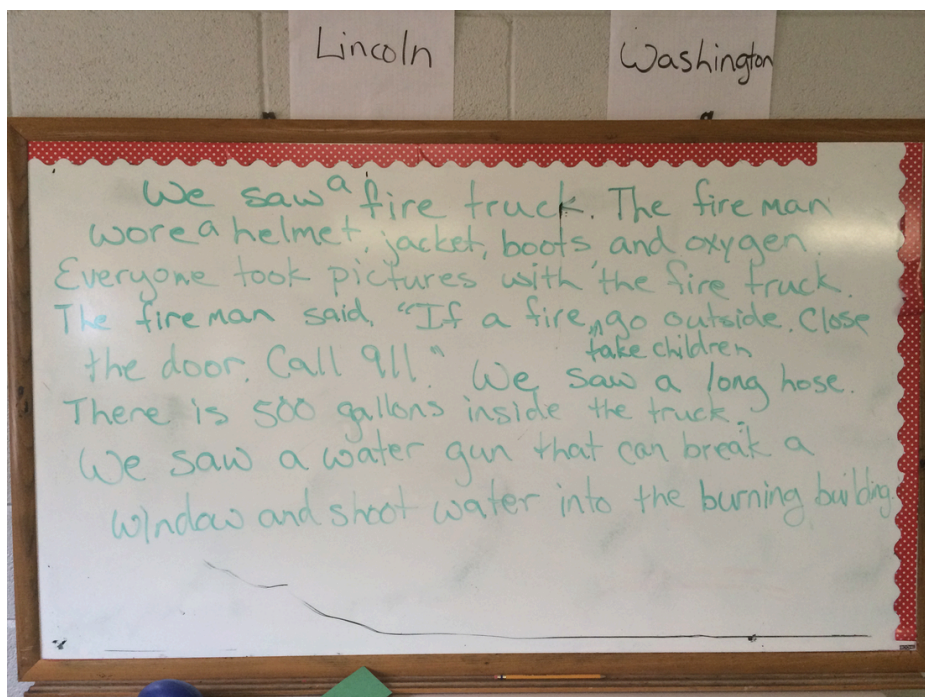 Lincoln
Washington
We saw a fire truck. The fireman
wore a helmet, jacket, boots, and oxygen.
Everyone took pictures with the fire truck.
The fireman said, "If a fire, go outside. Close
take children
the door. Call 911." We saw a long hose.
There is 500 gallons inside the truck.
We saw a water gun that can break a
window and shoot water into the burning building.